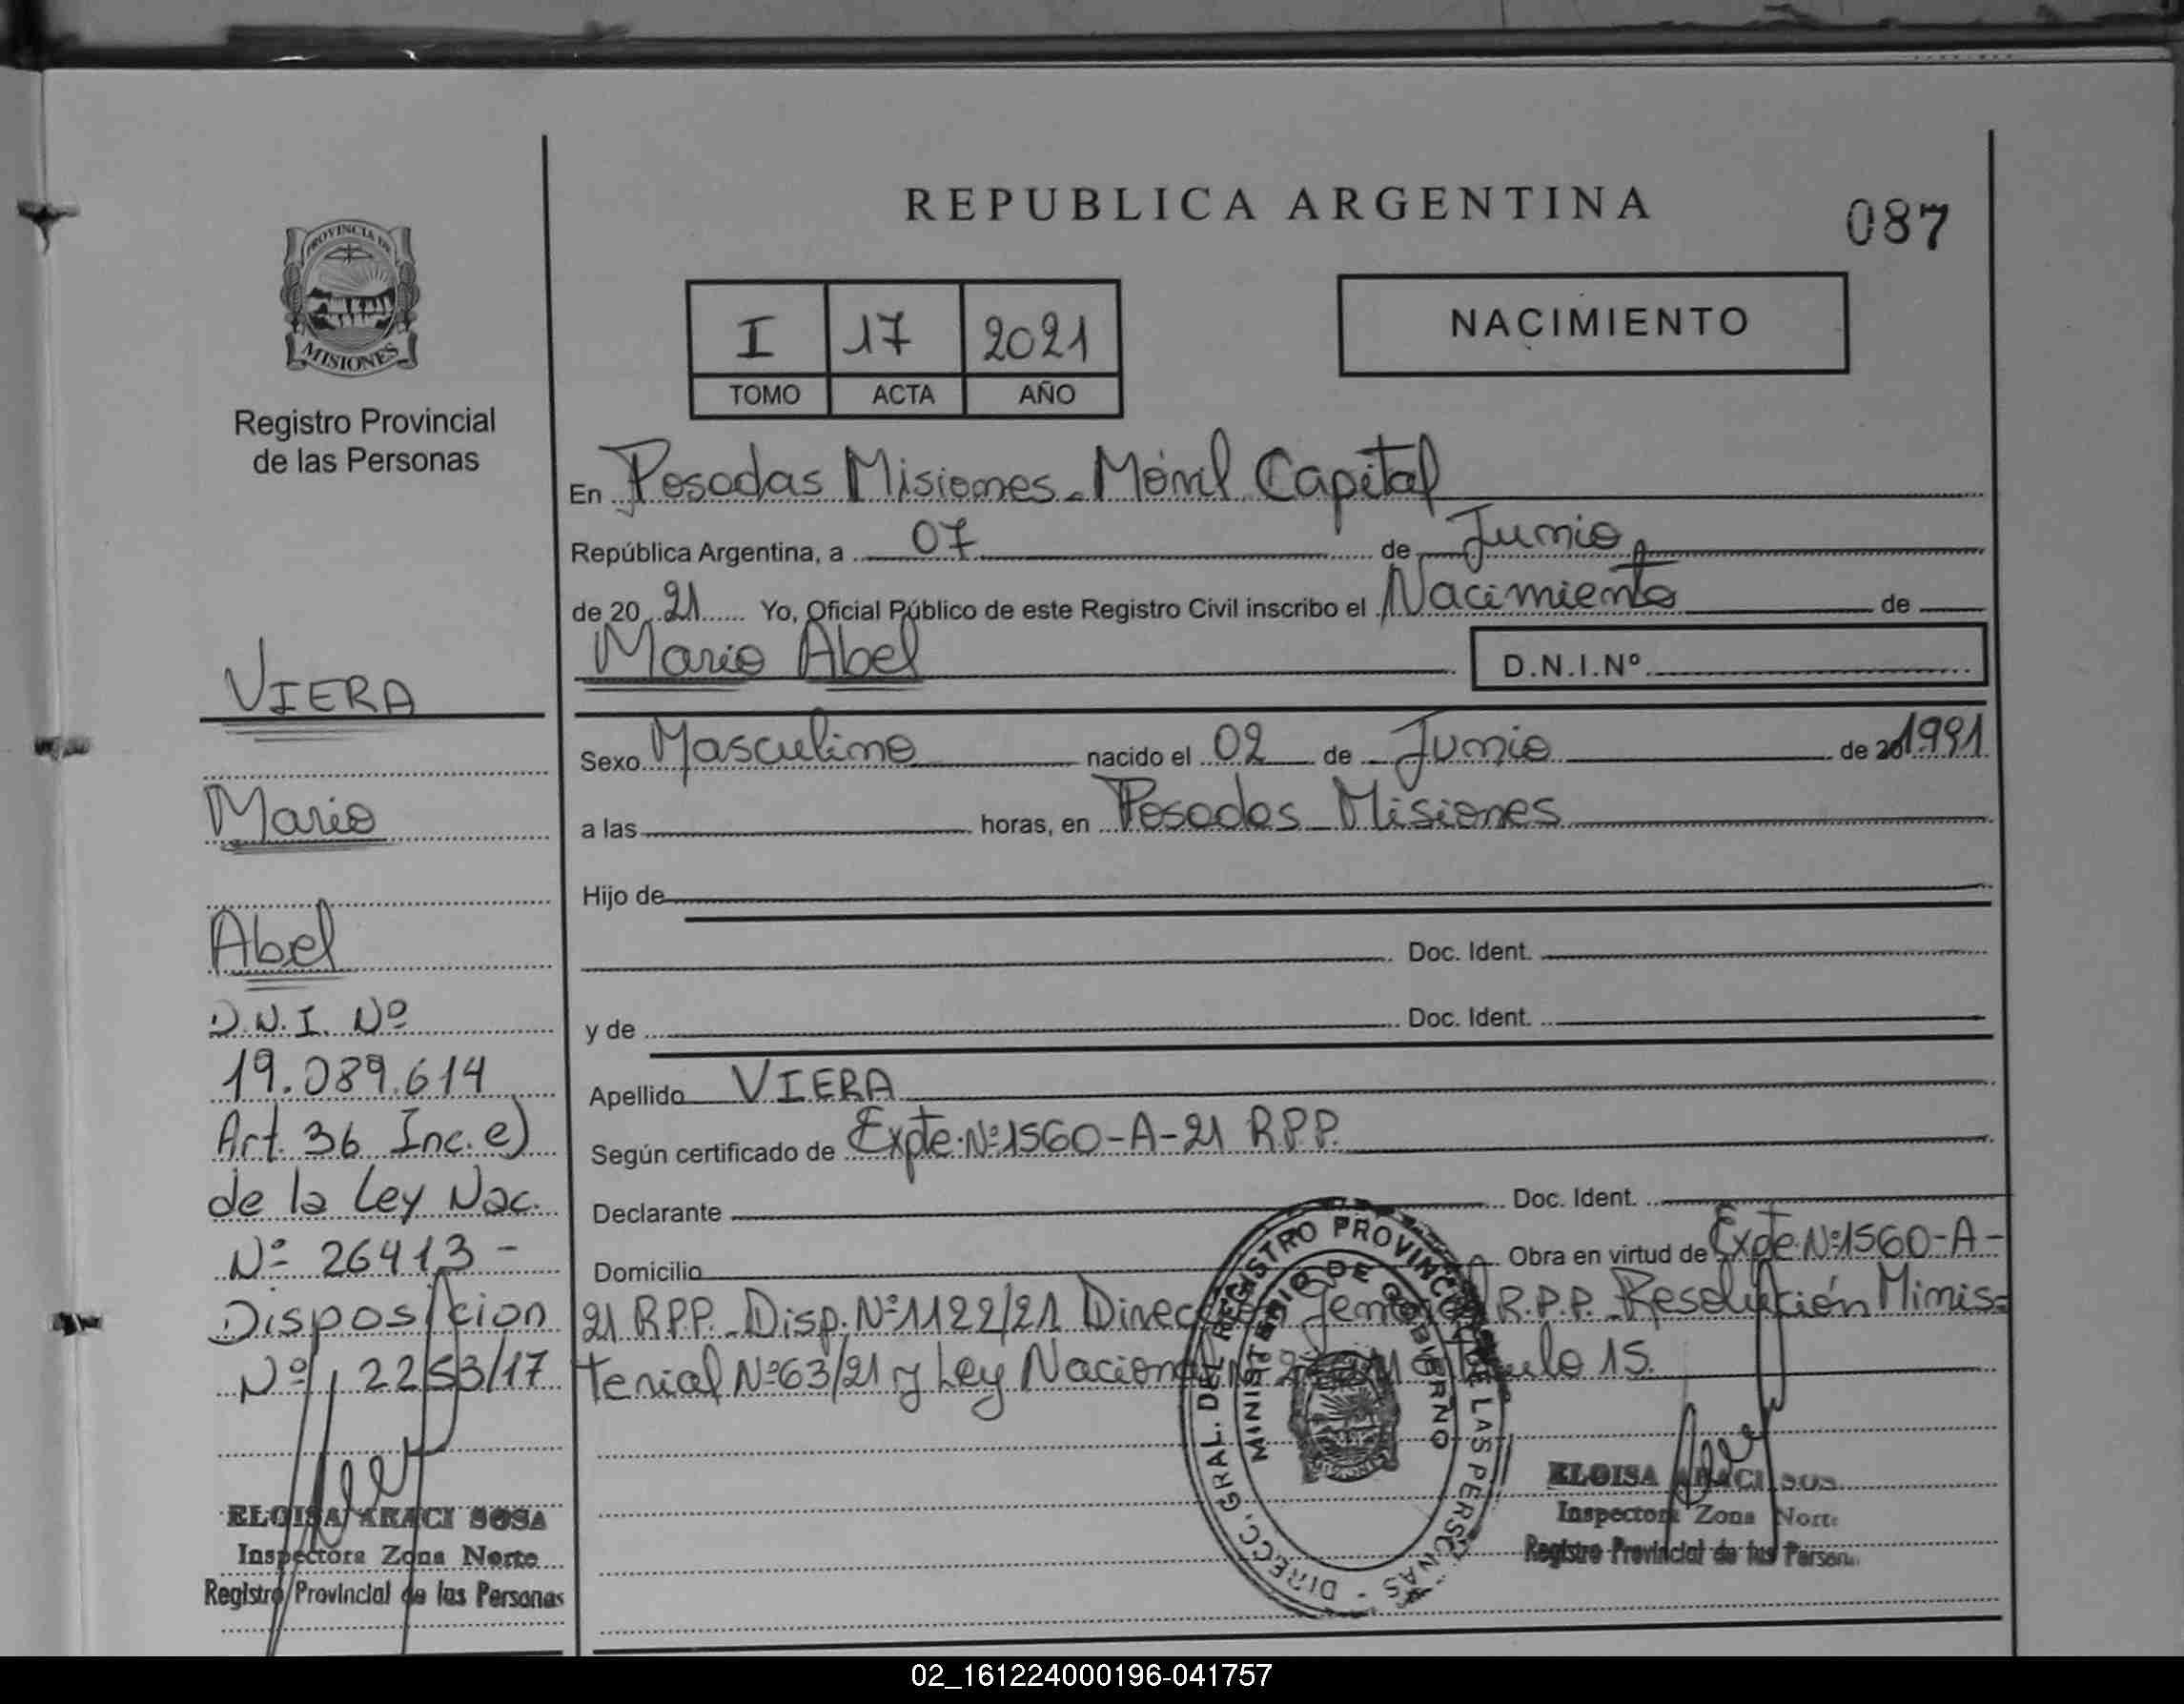 REPUBLICA ARGENTINA
087
PROVINCIA DE
MISIONES
Registro Provincial
de las Personas
I 17 2021
TOMO ACTA AÑO
NACIMIENTO
En Posadas Misiones - Móvil Capital
República Argentina, a 07 de Junio
de 20 21 Yo, Oficial Público de este Registro Civil inscribo el Nacimiento de
Mario Abel D.N.I.Nº
Sexo Masculino nacido el 02 de Junio de 20 1991
a las horas, en Posadas Misiones
Hijo de
Doc. Ident.
y de Doc. Ident.
Apellido VIERA
Según certificado de Expte. Nº 1560-A-21 R.P.P.
Declarante Doc. Ident.
Domicilio Obra en virtud de Expte. Nº 1560-A-
21 R.P.P. Disp. Nº 1122/21 R.P.P. Resolución Minis-
terial Nº 63/21 y Ley Nacional 15.
VIERA
Mario
Abel
D.N.I. Nº
19.089.614
Art. 36 Inc. e)
de la Ley Nac.
Nº 26413 -
Disposicion
Nº 2253/17
ELOISA ARACI SOSA
Inspectora Zona Norte
Registro Provincial de las Personas
DIRECC. GRAL. DEL REGISTRO PROVINCIAL DE LAS PERSONAS -
MINISTERIO DE GOBIERNO
ELOISA ARACI SOS
Inspectora Zona Norte
Registro Provincial de las Person
02_161224000196-041757